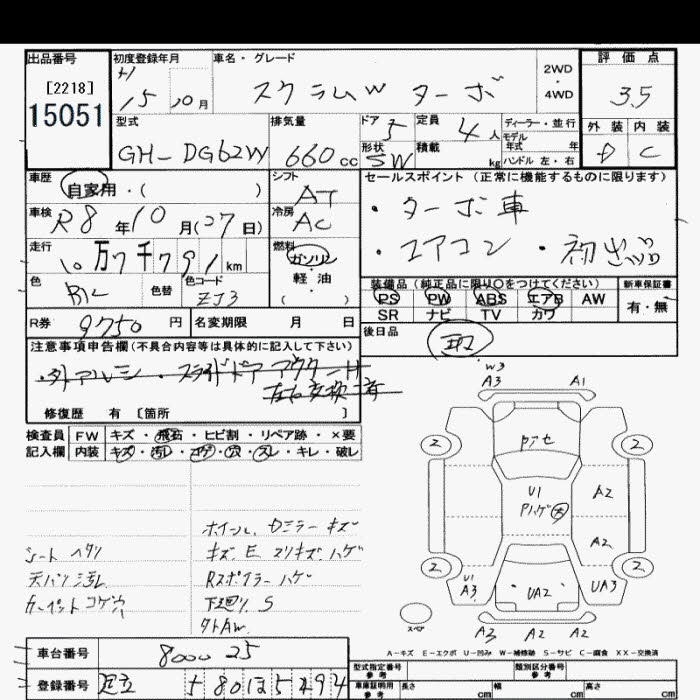 出品番号
[2218]
15051
初度登録年月
H 15 10月
車名・グレード
スクラムW ターボ
2WD
・
4WD
評価点
3.5
外装 内装
D C
型式
GH-DG62W
排気量
660cc
ドア 5
形状 SW
定員 4人
積載 kg
ディーラー・並行
モデル
年式 年
ハンドル 左・右
車歴
自家用・( )
シフト
AT
車検
R8年10月(27日)
冷房
AC
走行
10万7千791km
燃料
ガソリン
・
軽・油
( )
色
色替
色コード
ZJ3
セールスポイント (正常に機能するものに限ります)
・ターボ車
・エアコン ・初出品
装備品 (純正品に限り○をつけてください)
PS PW ABS エアB AW
SR ナビ TV カワ
新車保証書
有・無
R券
9750円
名変期限 月 日
後日品
注意事項申告欄(不具合内容等は具体的に記入して下さい)
・外アルミ・スライドドア アウターH
左右交換済
修復歴 有 〔箇所 〕
検査員
記入欄
FW キズ・飛石・ヒビ割・リペア跡・×要
内装 キズ・汚レ・コゲ・穴・スレ・キレ・破レ
ホイール、ドミラー キズ
シート ヘタリ
キズ、E スリキズ ハゲ
天バリ 汚レ
Rスポイラー ハゲ
カーペット コゲ穴
下廻り S
外AW
W3
A3 A1
2 2
U1
A2
A2
2 2
U1
A3
UA2
UA3
スペア
A3 A2 A2
A-キズ E-エクボ U-凹み W-補修跡 S-サビ C-腐食 XX-交換済
車台番号
800025
登録番号
足立
型式指定番号
参考
類別区分番号
参考
車庫証明用
参考
長さ cm
幅 cm
高さ cm